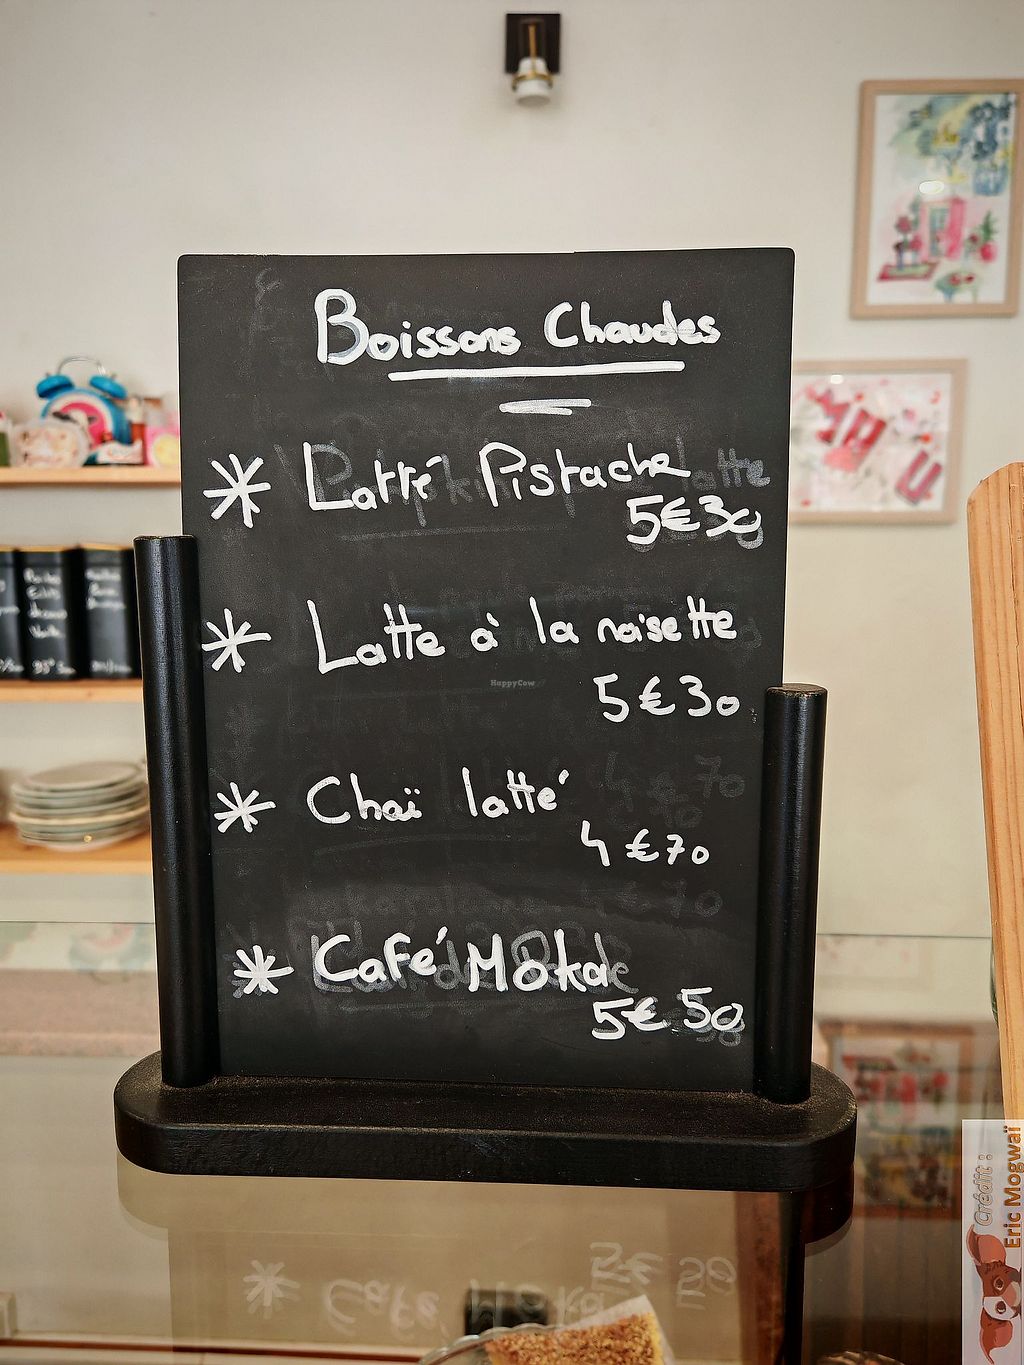 Boissons Chaudes
Latté Pistache
5€30
Latte à la noisette
5€30
Chaï latté
4€70
Café Moka
5€50
HappyCow
Crédit :
Eric Mogwaï